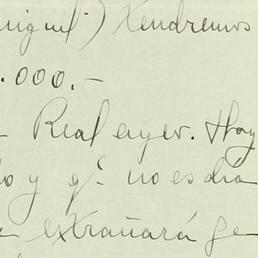 niguel") Xendremos
.000.-
- Real ayer. Hoy
o y q̃ no es día
extrañará ge